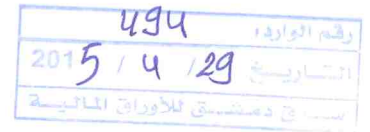 رقم الوارد: 494
التاريخ 29 / 4 / 2015
سوق دمشق للأوراق المالية